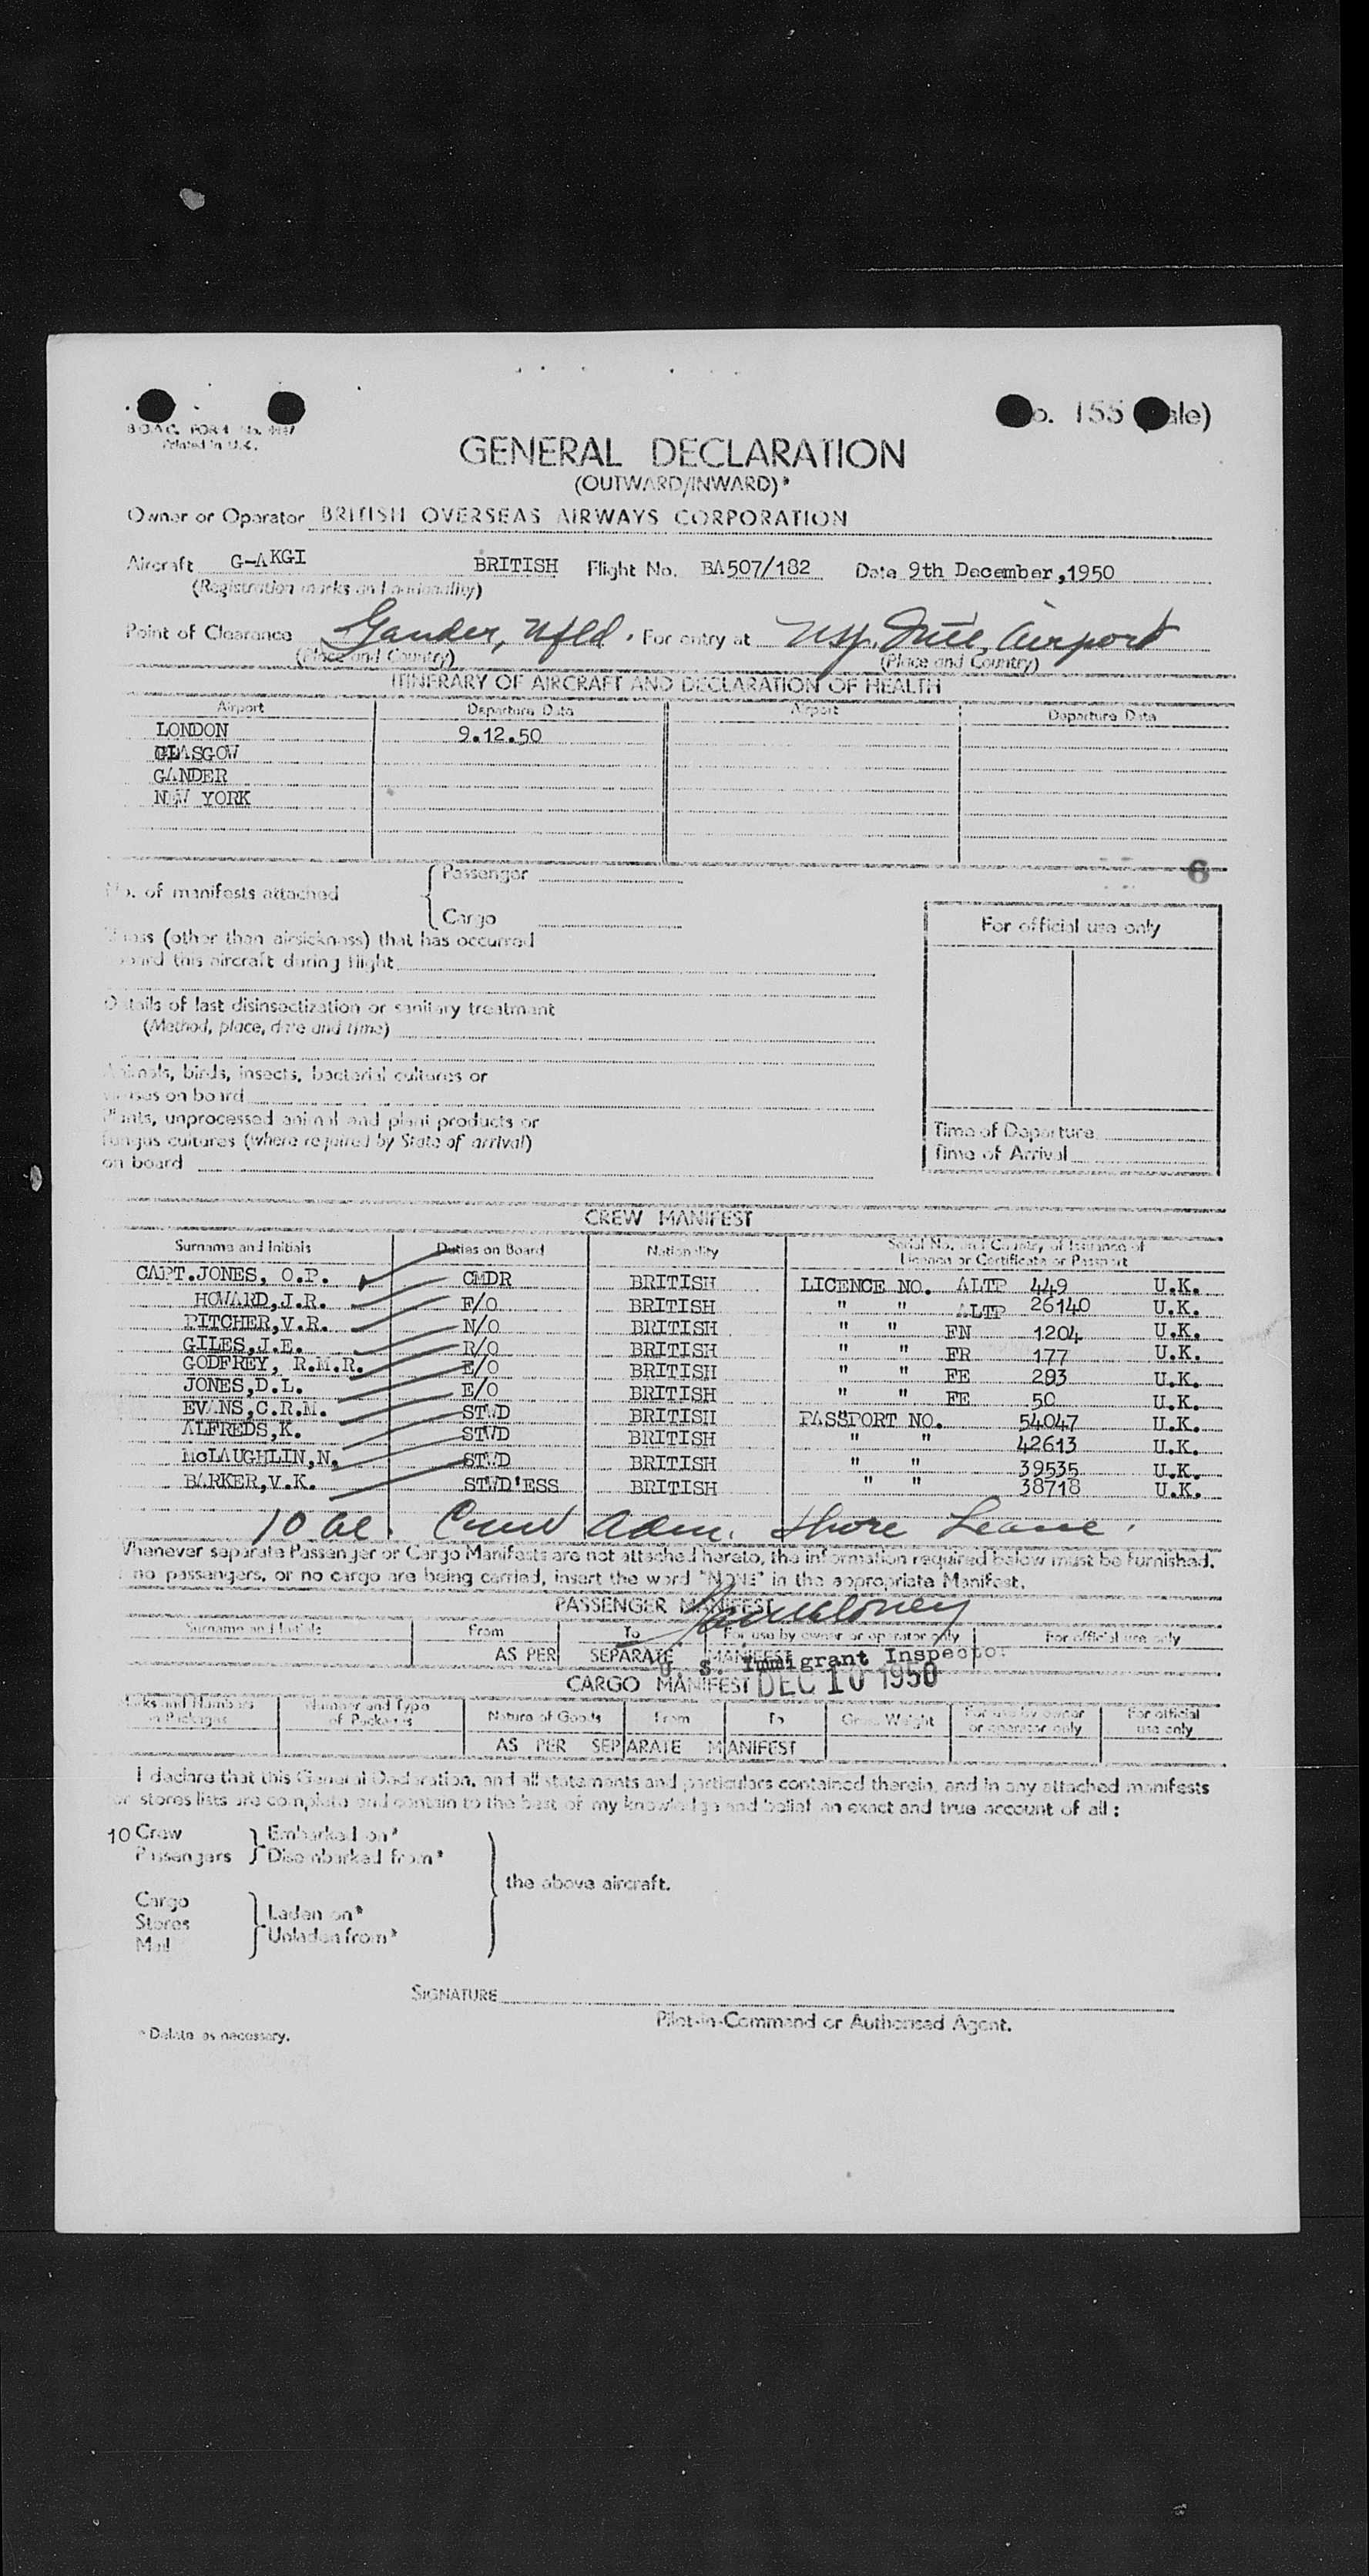 o. 155 ale)
B.O.A.C. FORM No.
Printed in U.K.
GENERAL DECLARATION
(OUTWARD/INWARD)*
Owner or Operator BRITISH OVERSEAS AIRWAYS CORPORATION
Aircraft G-AKGI BRITISH Flight No. BA507/182 Date 9th December,1950
(Registration marks and nationality)
Point of Clearance Gander, Nfld. For entry at Airport
(Place and Country) (Place and Country)
ITINERARY OF AIRCRAFT AND DECLARATION OF HEALTH
Airport Departure Date Airport Departure Date
LONDON 9.12.50
GLASGOW
GANDER
NEW YORK
6
No. of manifests attached { Passenger
Cargo
For official use only
ness (other than airsickness) that has occurred
board this aircraft during flight
Details of last disinsectization or sanitary treatment
(Method, place, date and time)
Animals, birds, insects, bacterial cultures or
viruses on board
Plants, unprocessed animal and plant products or
fungus cultures (where required by State of arrival)
on board
Time of Departure
Time of Arrival
CREW MANIFEST
Surname and Initials Duties on Board Nationality Serial No. and Country of Issuance of Licence or Certificate or Passport
CAPT.JONES, O.P. CMDR BRITISH LICENCE NO. ALTP 449 U.K.
HOWARD,J.R. F/O BRITISH " " ALTP 26140 U.K.
PITCHER,V.R. N/O BRITISH " " FN 1204 U.K.
GILES,J.E. R/O BRITISH " " FR 177 U.K.
GODFREY, R.M.R. E/O BRITISH " " FE 293 U.K.
JONES,D.L. E/O BRITISH " " FE 50 U.K.
EVANS,C.R.M. STWD BRITISH PASSPORT NO. 54047 U.K.
ALFREDS,K. STWD BRITISH " " 42613 U.K.
McLAUGHLIN,N. STWD BRITISH " " 39535 U.K.
BARKER,V.K. STWD'ESS BRITISH " " 38718 U.K.
10 Crew Adm. Shore Leave.
Whenever separate Passenger or Cargo Manifests are not attached hereto, the information required below must be furnished.
no passengers, or no cargo are being carried, insert the word "NONE" in the appropriate Manifest.
PASSENGER MANIFEST
Surname and Initials From To For use by owner or operator only For official use only
AS PER SEPARATE MANIFEST
U. S. Immigrant Inspector
CARGO MANIFEST DEC 10 1950
Marks and Numbers on Packages Number and Type of Packages Nature of Goods From To Gross Weight For use by owner or operator only For official use only
AS PER SEPARATE MANIFEST
I declare that this General Declaration, and all statements and particulars contained therein, and in any attached manifests
or stores lists are complete and contain to the best of my knowledge and belief an exact and true account of all :
10 Crew } Embarked on*
Passengers } Disembarked from*
the above aircraft.
Cargo
Stores } Laden on*
Mail Unladen from*
SIGNATURE
Pilot-in-Command or Authorised Agent.
* Delete as necessary.